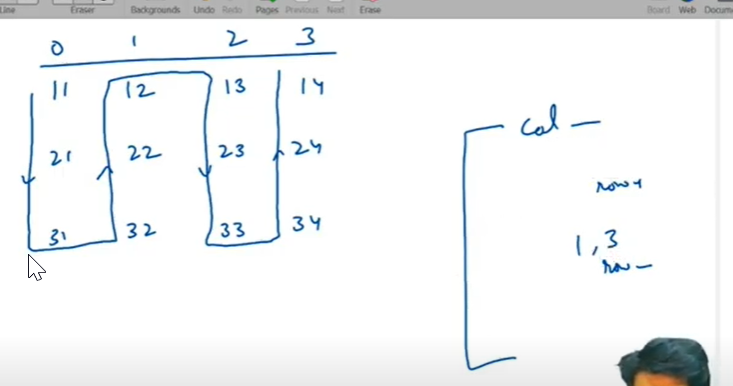 Line Eraser Backgrounds Undo Redo Pages Previous Next Erase Board Web Docum
0 1 2 3
11 12 13 14
21 22 23 24
31 32 33 34
col
row+
1, 3
row-